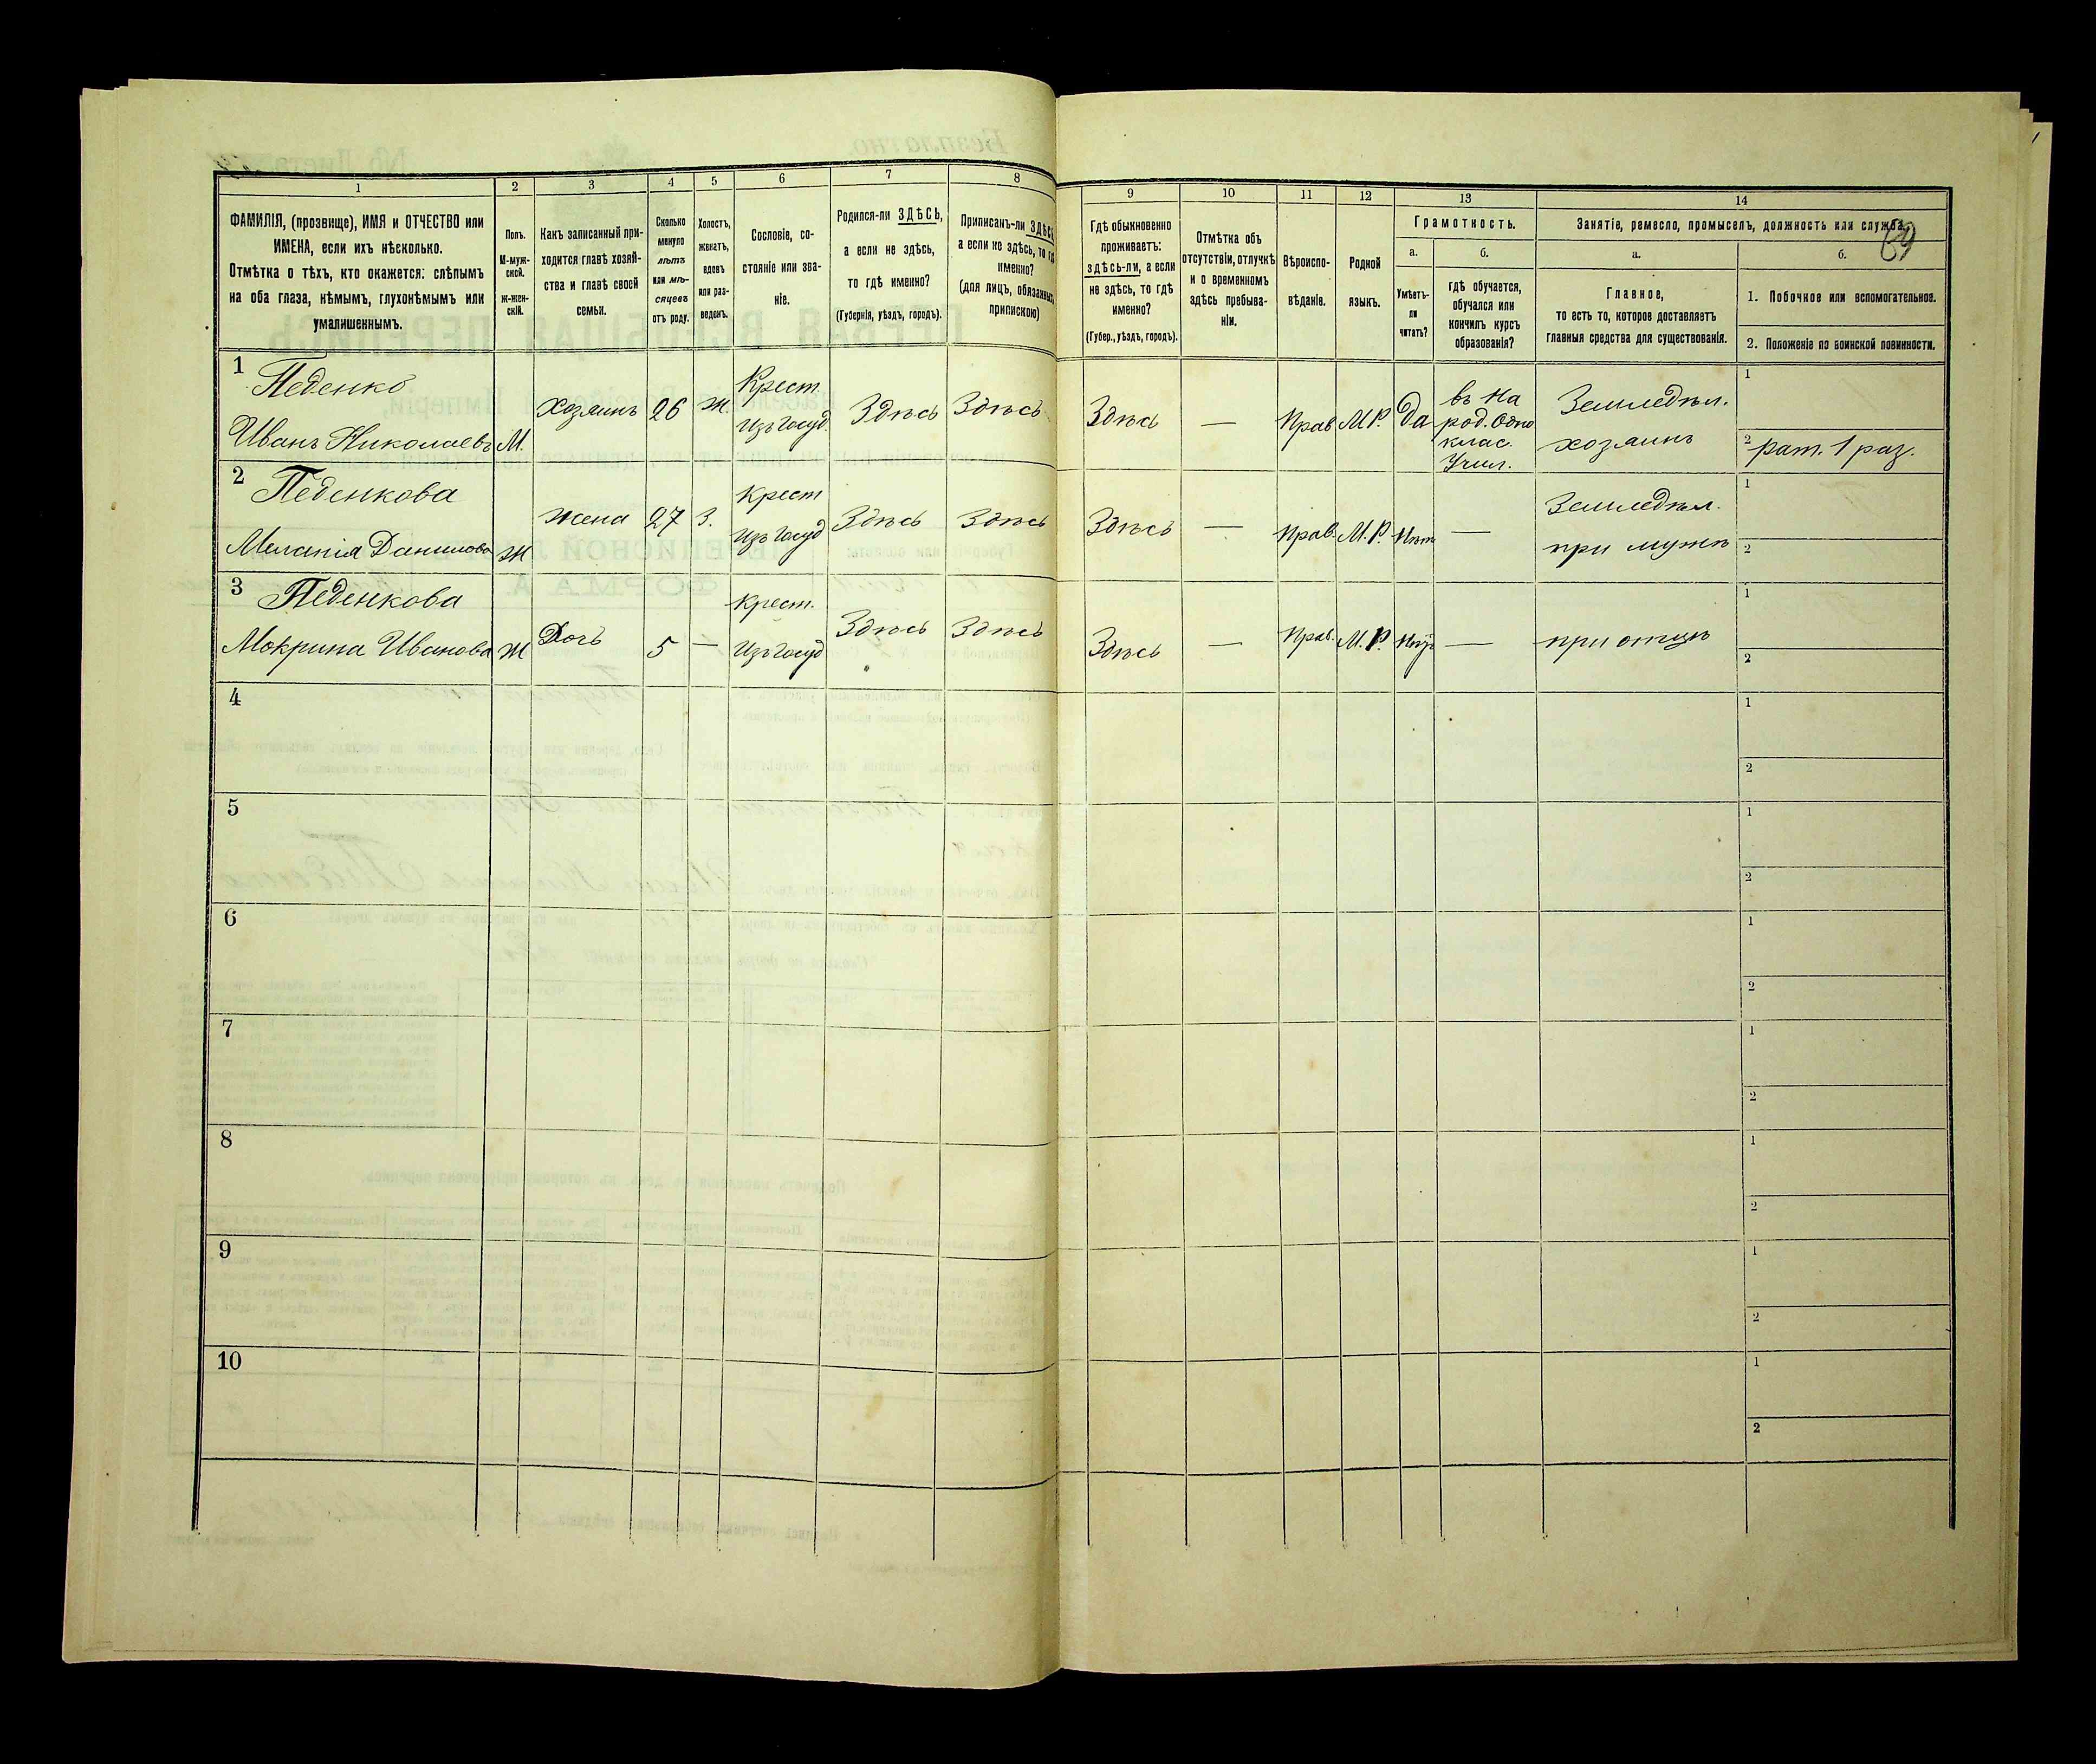 1 2 3 4 5 6 7 8 9 10 11 12 13 14
ФАМИЛІЯ, (прозвище), ИМЯ и ОТЧЕСТВО или
ИМЕНА, если ихъ нѣсколько.
Отмѣтка о тѣхъ, кто окажется: слѣпымъ
на оба глаза, нѣмымъ, глухонѣмымъ или
умалишеннымъ.
Полъ.
М-муж-
ской.
ж-жен-
скій.
Какъ записанный при-
ходится главѣ хозяй-
ства и главѣ своей
семьи.
Сколько
минуло
лѣтъ
или мѣ-
сяцевъ
отъ роду.
Холостъ,
женатъ,
вдовъ
или раз-
веденъ.
Сословіе, со-
стояніе или зва-
ніе.
Родился-ли ЗДѢСЬ,
а если не здѣсь,
то гдѣ именно?
(Губернія, уѣздъ, городъ).
Приписанъ-ли ЗДѢСЬ
а если не здѣсь, то гдѣ
именно?
(для лицъ, обязанныхъ
припискою)
Гдѣ обыкновенно
проживаетъ:
здѣсь-ли, а если
не здѣсь, то гдѣ
именно?
(Губер., уѣздъ, городъ).
Отмѣтка объ
отсутствіи, отлучкѣ
и о временномъ
здѣсь пребыва-
ніи.
Вѣроиспо-
вѣданіе.
Родной
языкъ.
Грамотность.
а.
Умѣетъ-
ли
читать?
б.
гдѣ обучается,
обучался или
кончилъ курсъ
образованія?
Занятіе, ремесло, промыселъ, должность или служба.
69
а.
Главное,
то есть то, которое доставляетъ
главныя средства для существованія.
б.
1. Побочное или вспомогательное.
2. Положеніе по воинской повинности.
1 Педенко
Иванъ Николаевъ М.
Хозяинъ 26 Ж.
Крест.
изъ Госуд
Здѣсь Здѣсь Здѣсь — Прав М.Р. Да
въ На
род. Одно
клас.
Учил.
Земледѣл.
хозяинъ
1
2 рат. 1 раз.
2 Педенкова
Меланія Данилова Ж
Жена 27 З.
Крест
изъ Госуд
Здѣсь Здѣсь Здѣсь — Прав. М.Р. Нѣт —
Земледѣл.
при мужѣ
1
2
3 Педенкова
Мокрина Иванова Ж
Дочь 5 —
крест.
изъ Госуд
Здѣсь Здѣсь Здѣсь — Прав. М.Р. Нѣт — при отцѣ
1
2
4
1
2
5
1
2
6
1
2
7
1
2
8
1
2
9
1
2
10
1
2